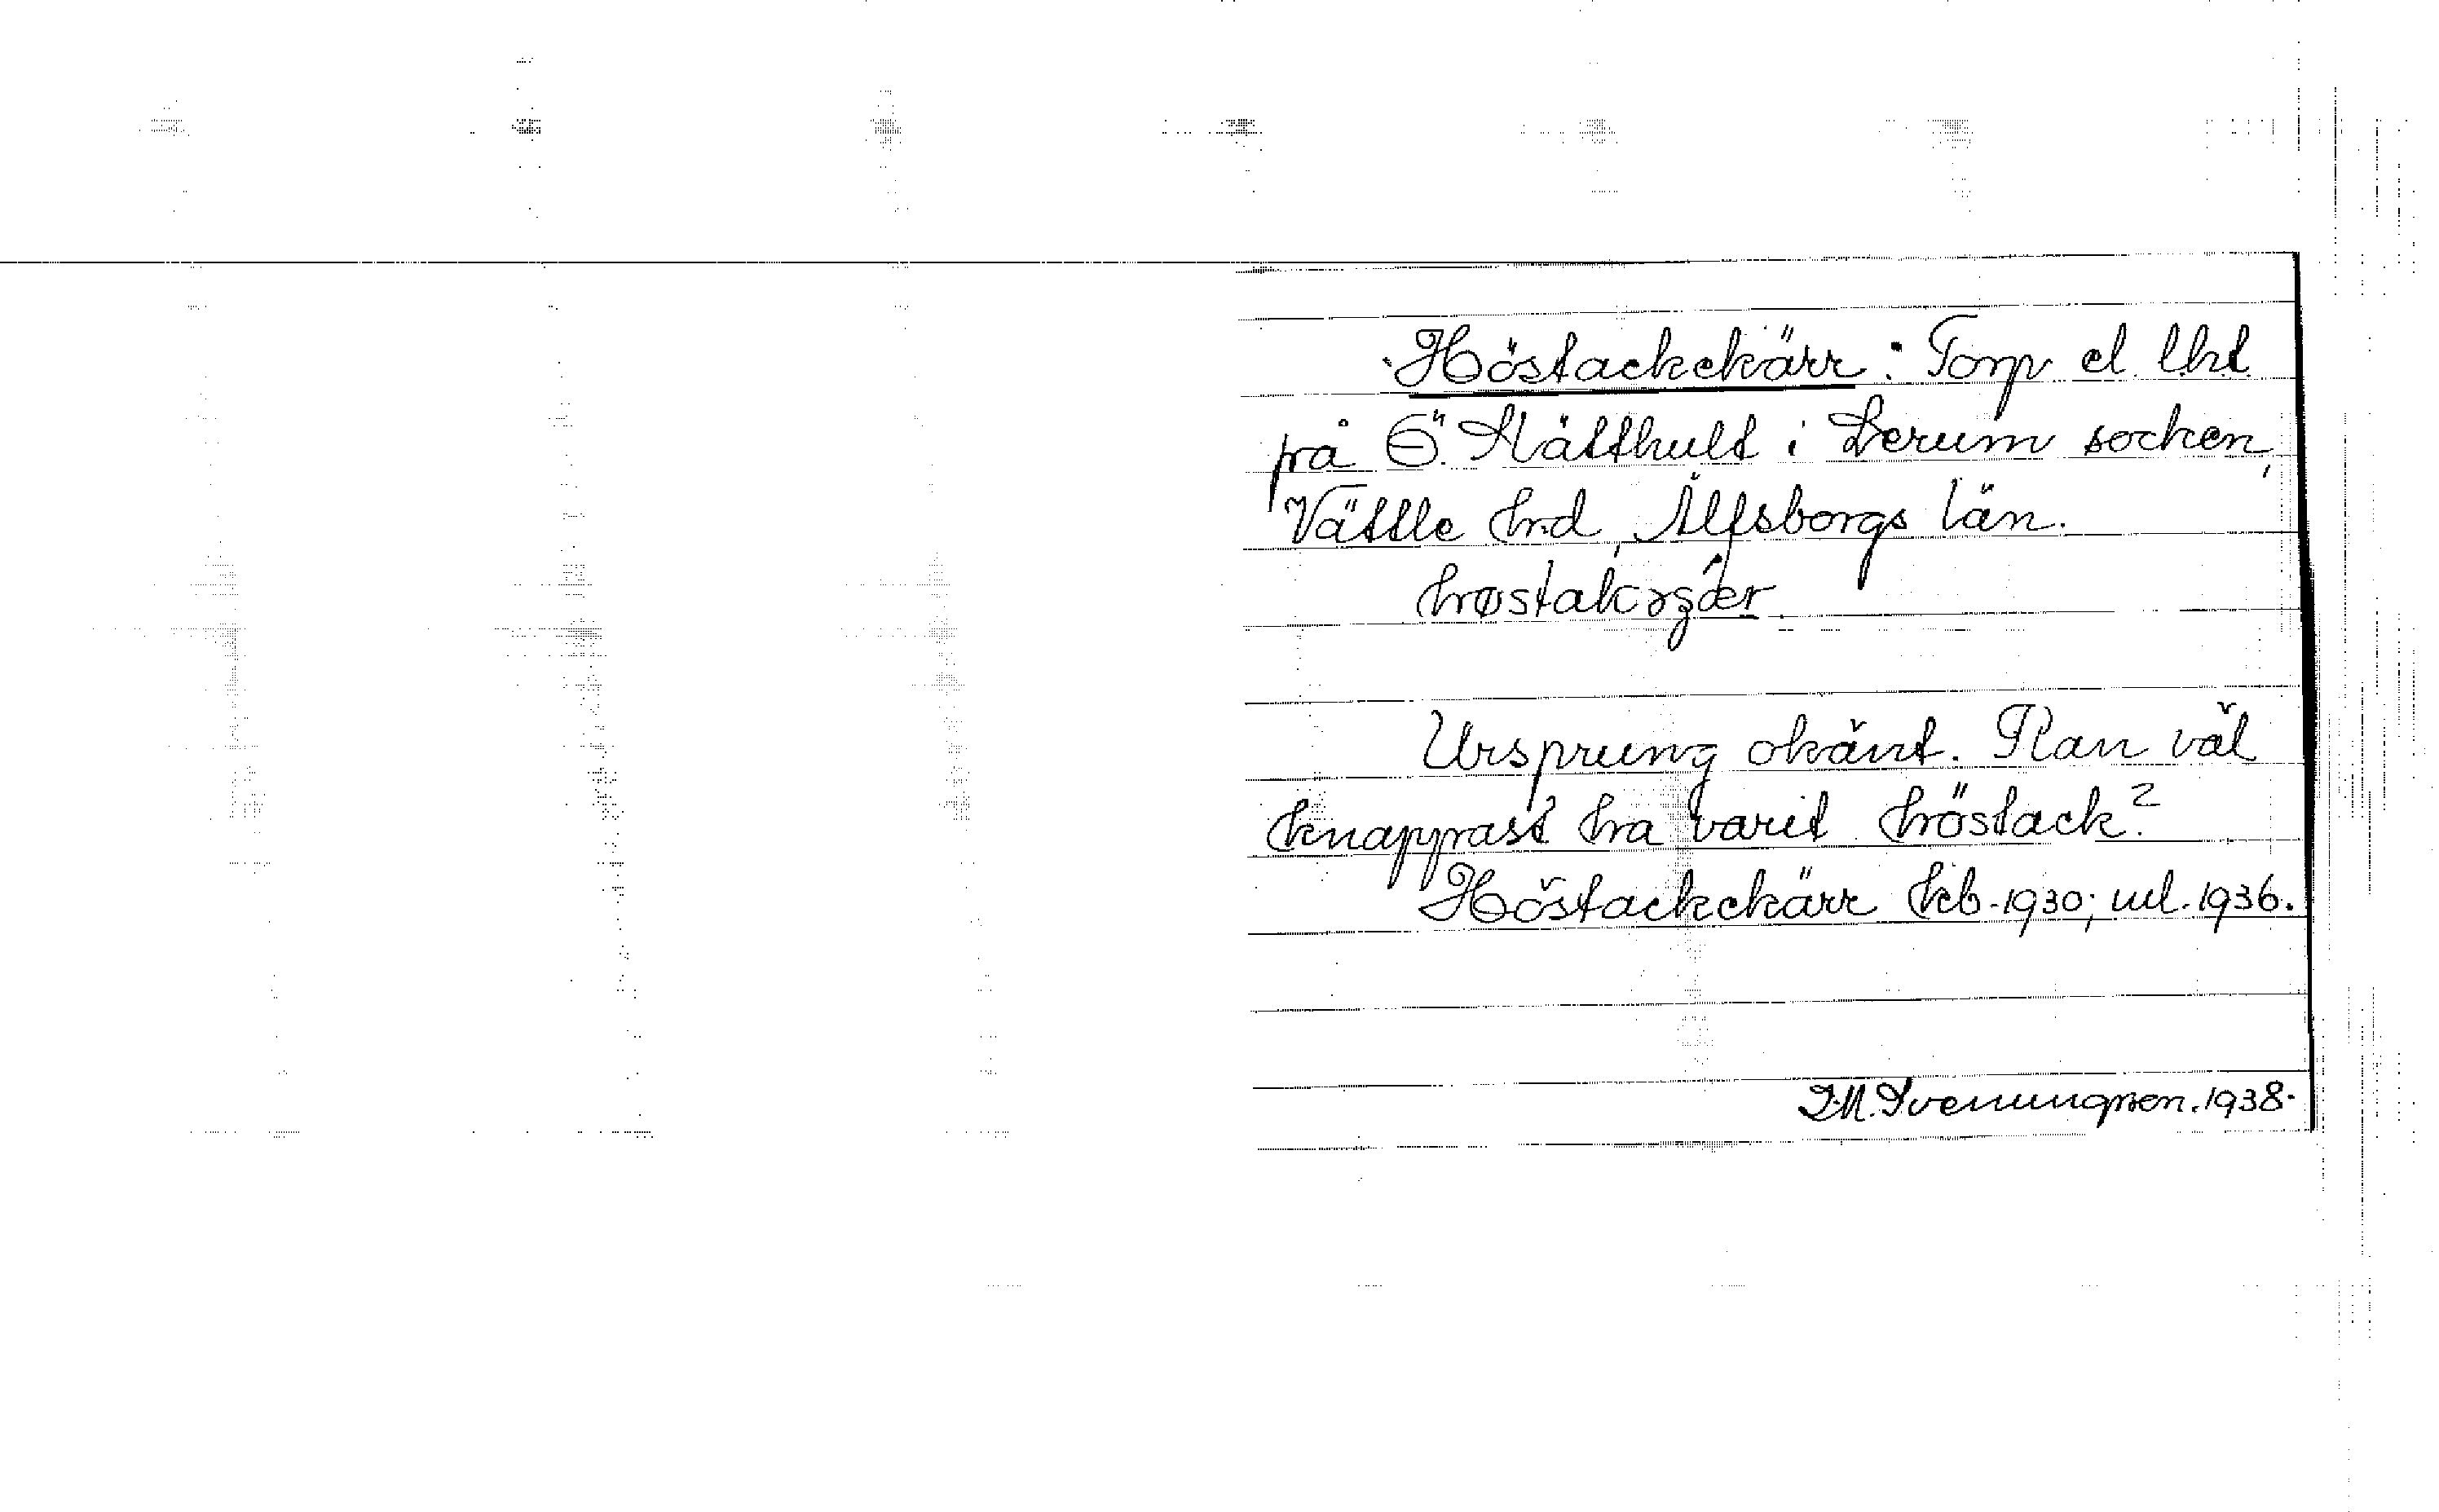 Höstackekärr: Torp el. lht
på Ö. Hätthult i Lerum socken,
Vättle hd, Älfsborgs län.
høstak
Ursprung okänt. Kan väl
knappast ha varit höstack?
Höstackekärr kb. 1930; ul. 1936.
J.M. Svenungsson. 1938.